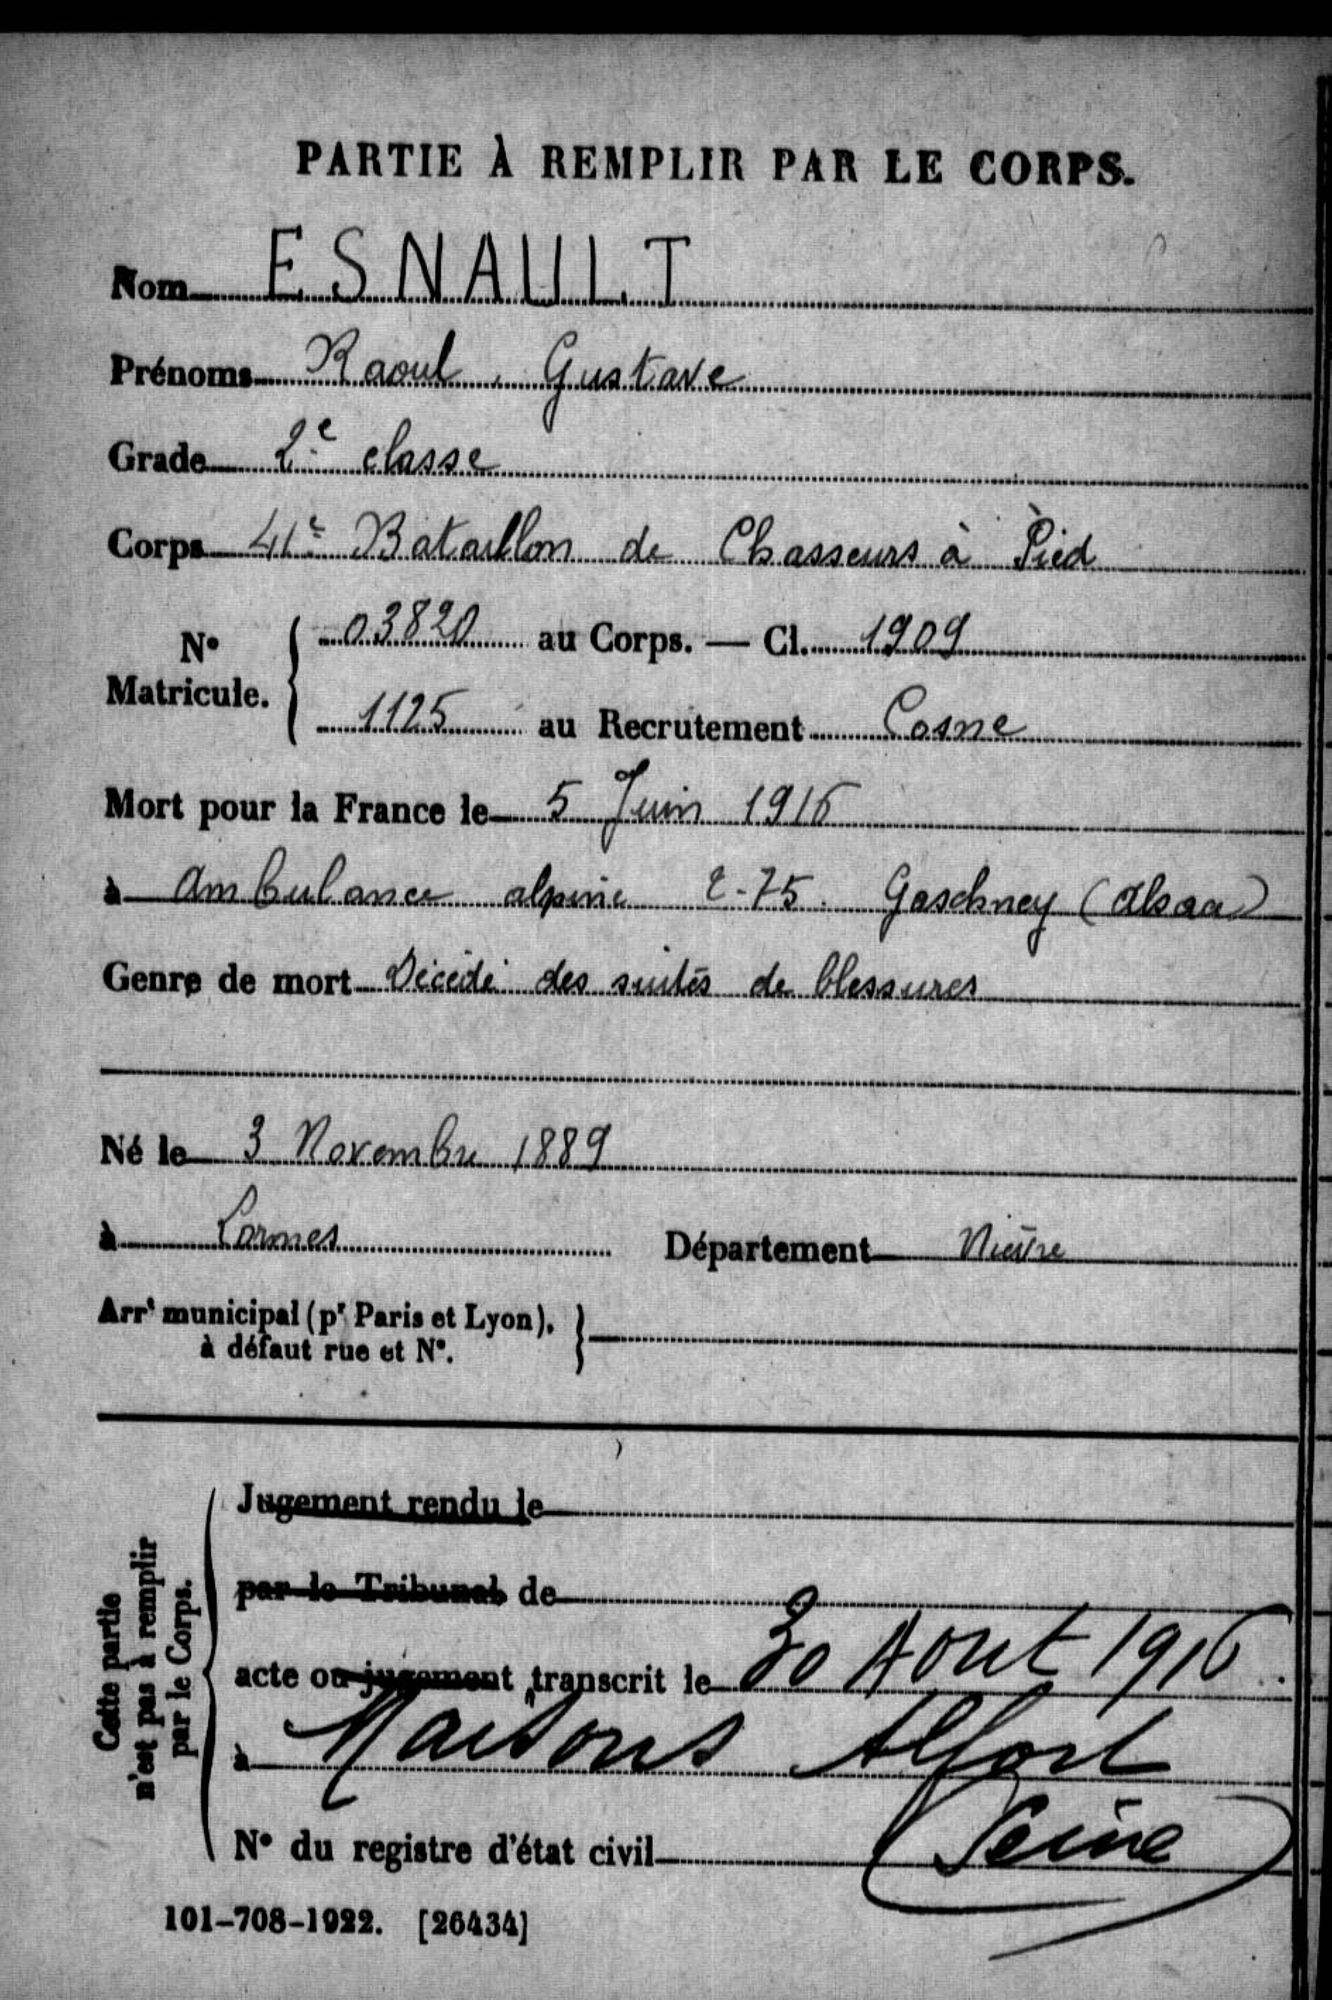 PARTIE À REMPLIR PAR LE CORPS.
Nom ESNAULT
Prénoms Raoul, Gustave
Grade 2e classe
Corps 41e Bataillon de Chasseurs à Pied
No Matricule. 03820 au Corps. — Cl. 1909
1125 au Recrutement Cosne
Mort pour la France le 5 Juin 1916
à Ambulance alpine 2-75. Gaschney (Alsace)
Genre de mort Décédé des suites de blessures
Né le 3 Novembre 1889
à Lormes Département Nièvre
Arrt municipal (pr Paris et Lyon),
à défaut rue et No.
Cette partie
n'est pas à remplir
par le Corps.
Jugement rendu le
par le Tribunal de
acte ou jugement transcrit le 30 Aout 1916
à Maisons Alfort
No du registre d'état civil Seine
101-708-1922. [26434]